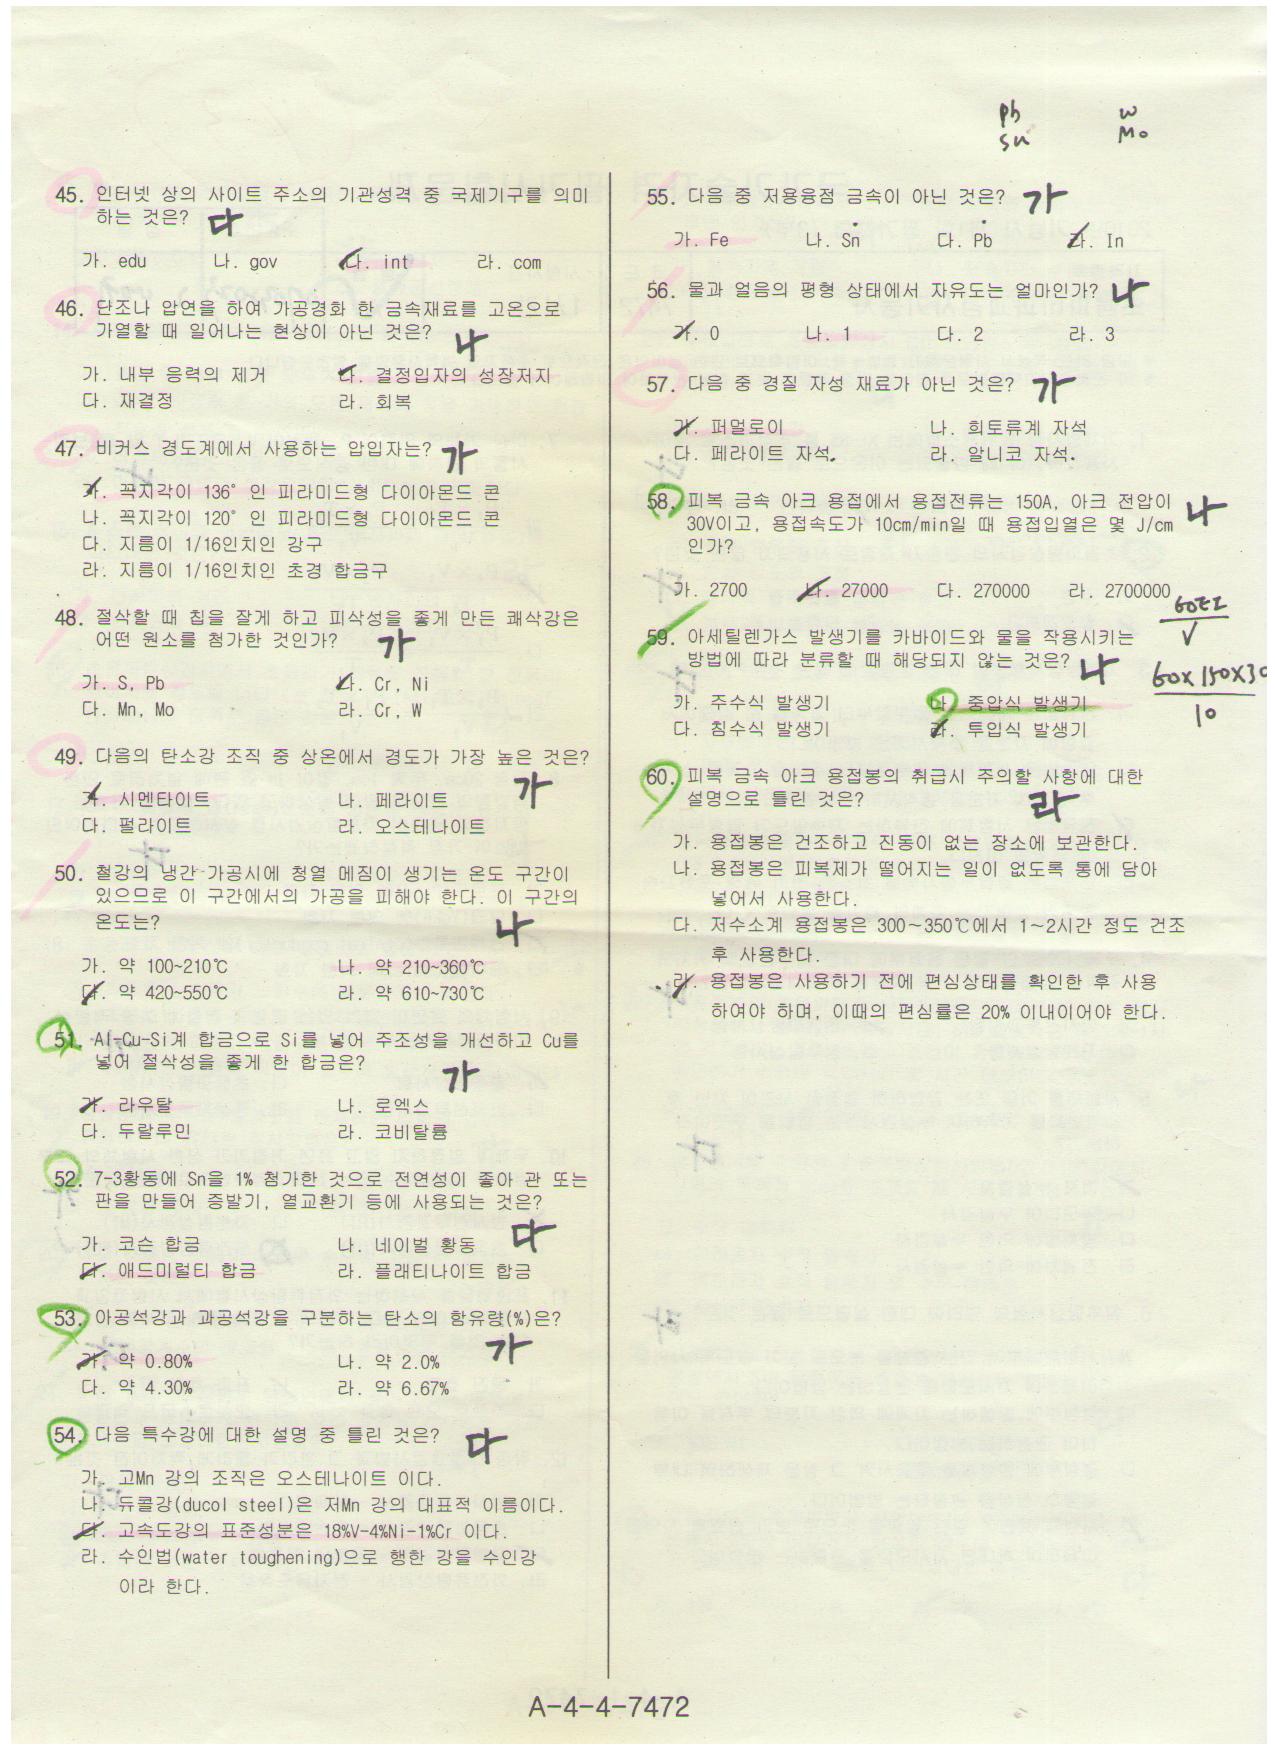 Pb
W
Sn
Mo
45. 인터넷 상의 사이트 주소의 기관성격 중 국제기구를 의미
하는 것은? 다
가. edu 나. gov 다. int 라. com
46. 단조나 압연을 하여 가공경화 한 금속재료를 고온으로
가열할 때 일어나는 현상이 아닌 것은? 나
가. 내부 응력의 제거 나. 결정입자의 성장저지
다. 재결정 라. 회복
47. 비커스 경도계에서 사용하는 압입자는? 가
가. 꼭지각이 136° 인 피라미드형 다이아몬드 콘
나. 꼭지각이 120° 인 피라미드형 다이아몬드 콘
다. 지름이 1/16인치인 강구
라. 지름이 1/16인치인 초경 합금구
48. 절삭할 때 칩을 잘게 하고 피삭성을 좋게 만든 쾌삭강은
어떤 원소를 첨가한 것인가? 가
가. S, Pb 나. Cr, Ni
다. Mn, Mo 라. Cr, W
49. 다음의 탄소강 조직 중 상온에서 경도가 가장 높은 것은?
가
가. 시멘타이트 나. 페라이트
다. 펄라이트 라. 오스테나이트
50. 철강의 냉간 가공시에 청열 메짐이 생기는 온도 구간이
있으므로 이 구간에서의 가공을 피해야 한다. 이 구간의
온도는? 나
가. 약 100~210℃ 나. 약 210~360℃
다. 약 420~550℃ 라. 약 610~730℃
51. Al-Cu-Si계 합금으로 Si를 넣어 주조성을 개선하고 Cu를
넣어 절삭성을 좋게 한 합금은?
가
가. 라우탈 나. 로엑스
다. 두랄루민 라. 코비탈륨
52. 7-3황동에 Sn을 1% 첨가한 것으로 전연성이 좋아 관 또는
판을 만들어 증발기, 열교환기 등에 사용되는 것은?
다
가. 코슨 합금 나. 네이벌 황동
다. 애드미럴티 합금 라. 플래티나이트 합금
53. 아공석강과 과공석강을 구분하는 탄소의 함유량(%)은?
가
가. 약 0.80% 나. 약 2.0%
다. 약 4.30% 라. 약 6.67%
54. 다음 특수강에 대한 설명 중 틀린 것은? 다
가. 고Mn 강의 조직은 오스테나이트 이다.
나. 듀콜강(ducol steel)은 저Mn 강의 대표적 이름이다.
다. 고속도강의 표준성분은 18%V-4%Ni-1%Cr 이다.
라. 수인법(water toughening)으로 행한 강을 수인강
이라 한다.
55. 다음 중 저용융점 금속이 아닌 것은? 가
가. Fe 나. Sn 다. Pb 라. In
56. 물과 얼음의 평형 상태에서 자유도는 얼마인가? 나
가. 0 나. 1 다. 2 라. 3
57. 다음 중 경질 자성 재료가 아닌 것은? 가
가. 퍼멀로이 나. 희토류계 자석
다. 페라이트 자석. 라. 알니코 자석.
58. 피복 금속 아크 용접에서 용접전류는 150A, 아크 전압이
30V이고, 용접속도가 10cm/min일 때 용접입열은 몇 J/cm
인가? 나
가. 2700 나. 27000 다. 270000 라. 2700000
60EI
V
59. 아세틸렌가스 발생기를 카바이드와 물을 작용시키는
방법에 따라 분류할 때 해당되지 않는 것은? 나
60x150x30
10
가. 주수식 발생기 나. 중압식 발생기
다. 침수식 발생기 라. 투입식 발생기
60. 피복 금속 아크 용접봉의 취급시 주의할 사항에 대한
설명으로 틀린 것은? 라
가. 용접봉은 건조하고 진동이 없는 장소에 보관한다.
나. 용접봉은 피복제가 떨어지는 일이 없도록 통에 담아
넣어서 사용한다.
다. 저수소계 용접봉은 300~350℃에서 1~2시간 정도 건조
후 사용한다.
라. 용접봉은 사용하기 전에 편심상태를 확인한 후 사용
하여야 하며, 이때의 편심률은 20% 이내이어야 한다.
A-4-4-7472